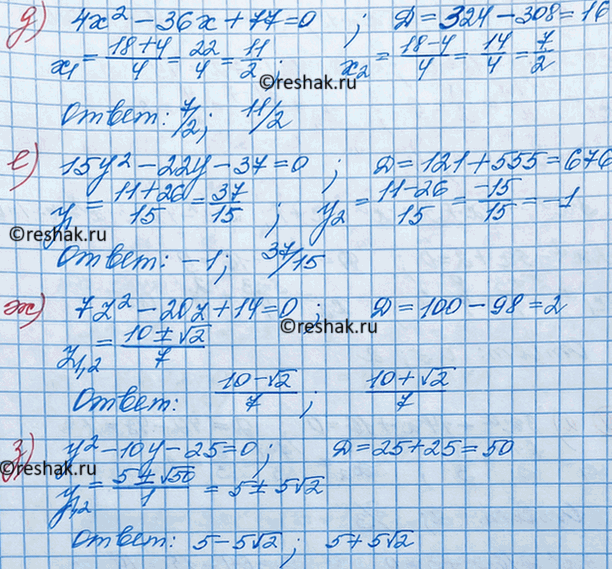 д) 4x² − 36x + 77 = 0 ; Д = 324 − 308 = 16
x₁ = (18+4)/4 = 22/4 = 11/2 ; x₂ = (18−4)/4 = 14/4 = 7/2
©reshak.ru
Ответ: 7/2 ; 11/2
е) 15y² − 22y − 37 = 0 ; Д = 121 + 555 = 676
y₁ = (11+26)/15 = 37/15 ; y₂ = (11−26)/15 = −15/15 = −1
©reshak.ru ©reshak.ru
Ответ: −1 ; 37/15
ж) 7z² − 20z + 14 = 0 ; Д = 100 − 98 = 2
©reshak.ru
z₁,₂ = (10 ± √2)/7
Ответ: (10−√2)/7 ; (10+√2)/7
з) y² − 10y − 25 = 0 ; Д = 25 + 25 = 50
©reshak.ru
y₁,₂ = (5 ± √50)/1 = 5 ± 5√2
©reshak.ru
Ответ: 5 − 5√2 ; 5 + 5√2